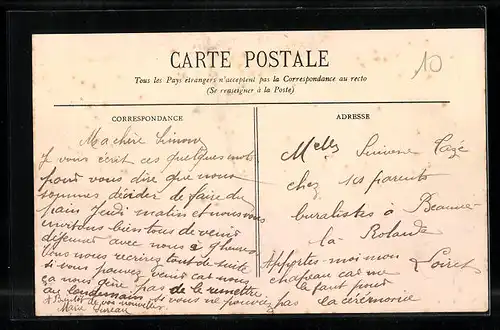 CARTE POSTALE
Tous les Pays étrangers n'acceptent pas la Correspondance au recto
(Se renseigner à la Poste)
10
CORRESPONDANCE
Ma chère Simone
Je vous écrit ces quelques mots
pour vous dire que nous
sommes décider de faire du
pain Jeudi matin et nous vous
invitons bien tous de venir
déjeuner avec nous à 9 heures
Vous nous recrirez tout de suite
si vous pouvez venir car nous
ça nous gène pas de le remettre
au lendemain si vous ne pouvez pas
+ Bientôt de vos nouvelles
Marie Sureau
ADRESSE
Melles Simone
chez ses parents
buralistes à Beaune
la Rolande
Loiret
Apportes moi mon
chapeau car me
le faut pour
la cérémonie